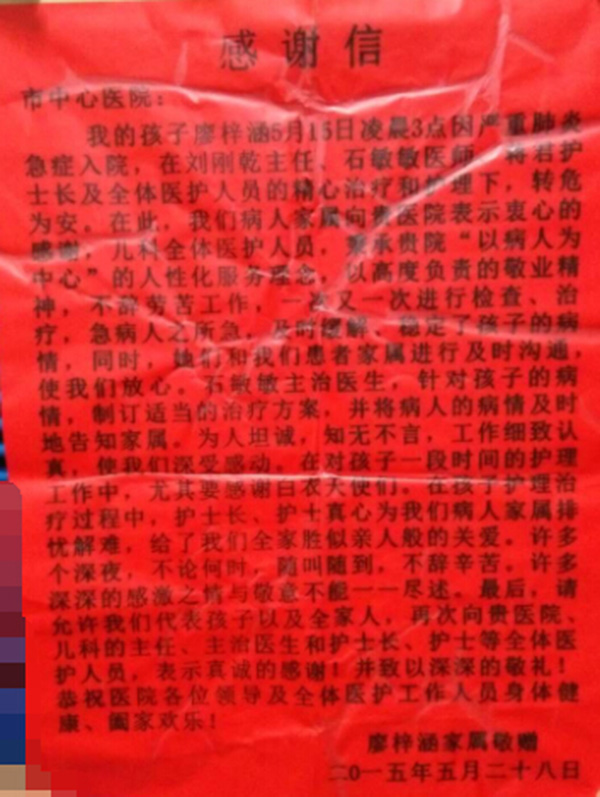 感谢信
市中心医院：
我的孩子廖梓涵5月15日凌晨3点因严重肺炎
急症入院，在刘刚乾主任、石敏敏医师、蒋君护
士长及全体医护人员的精心治疗和护理下，转危
为安。在此，我们病人家属向贵医院表示衷心的
感谢，儿科全体医护人员，秉承贵院“以病人为
中心”的人性化服务理念，以高度负责的敬业精
神，不辞劳苦工作，一次又一次进行检查、治
疗，急病人之所急，及时缓解、稳定了孩子的病
情，同时，她们和我们患者家属进行及时沟通，
使我们放心。石敏敏主治医生，针对孩子的病
情，制订适当的治疗方案，并将病人的病情及时
地告知家属。为人坦诚，知无不言，工作细致认
真，使我们深受感动。在对孩子一段时间的护理
工作中，尤其要感谢白衣天使们，在孩子护理治
疗过程中，护士长、护士真心为我们病人家属排
忧解难，给了我们全家胜似亲人般的关爱。许多
个深夜，不论何时，随叫随到，不辞辛苦。许多
深深的感激之情与敬意不能一一尽述。最后，请
允许我们代表孩子以及全家人，再次向贵医院、
儿科的主任、主治医生和护士长、护士等全体医
护人员，表示真诚的感谢！并致以深深的敬礼！
恭祝医院各位领导及全体医护工作人员身体健
康、阖家欢乐！
廖梓涵家属敬赠
二0一五年五月二十八日